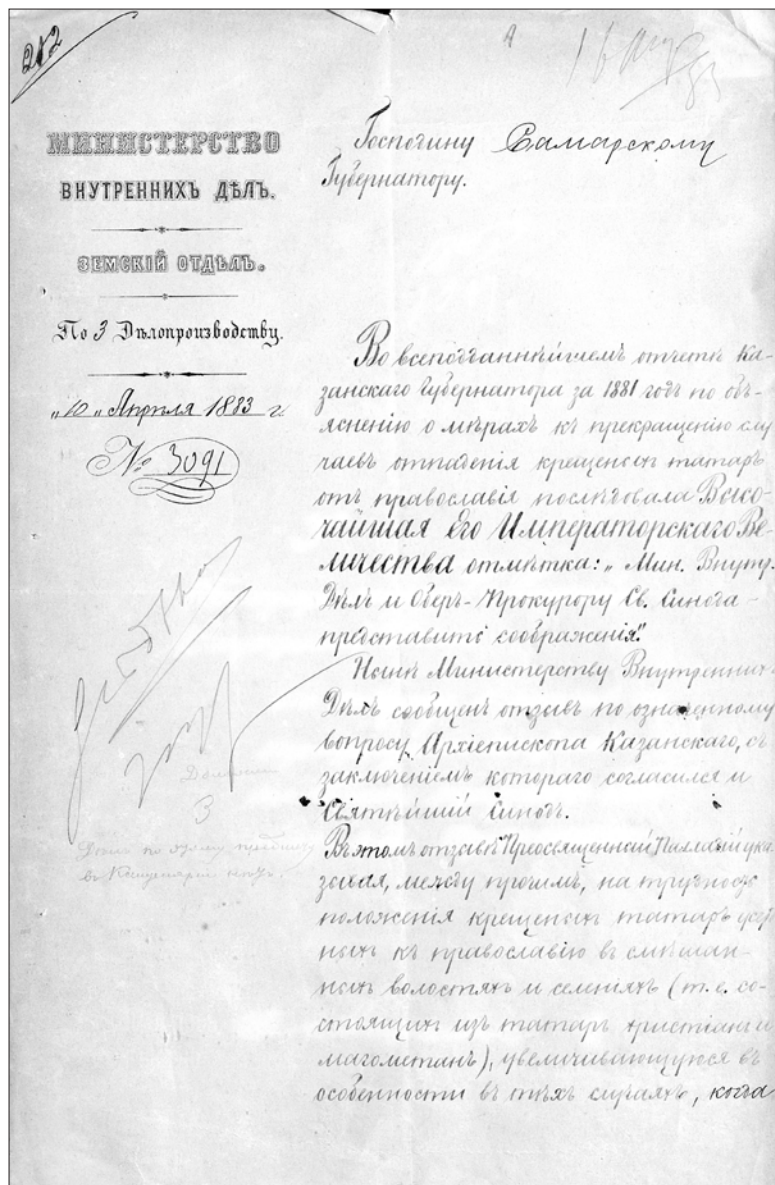 212
16 Апр
83
МИНИСТЕРСТВО
ВНУТРЕННИХЪ ДѢЛЪ.
ЗЕМСКІЙ ОТДѢЛЪ.
По 3 Дѣлопроизводству.
„10„ Апрѣля 1883 г.
№ 3091
Господину Самарскому
Губернатору.
Во всеподданнѣйшемъ отчетѣ Ка-
занскаго Губернатора за 1881 годъ по объ-
ясненію о мѣрахъ къ прекращенію слу
чаевъ отпаденія крещеныхъ татаръ
отъ православія послѣдовала Высо-
чайшая Его Императорскаго Ве-
личества отмѣтка: „Мин. Внутр.
Дѣлъ и Оберъ-Прокурору Св. Синода-
представить соображенія".
Нынѣ Министерству Внутреннихъ
Дѣлъ сообщенъ отзывъ по означенному
вопросу Архіепископа Казанскаго, съ
заключеніемъ котораго согласился и
Святѣйшій Синодъ.
Въ этомъ отзывѣ Преосвященный Палладій ука
зывая, между прочимъ, на трудность
положенія крещеныхъ татаръ
ныхъ къ православію въ смѣшан-
ныхъ волостяхъ и селеніяхъ (т. е. со-
стоящихъ изъ татаръ христіанъ и
магометанъ), увеличивающуюся въ
особенности въ тѣхъ случаяхъ, когда
3